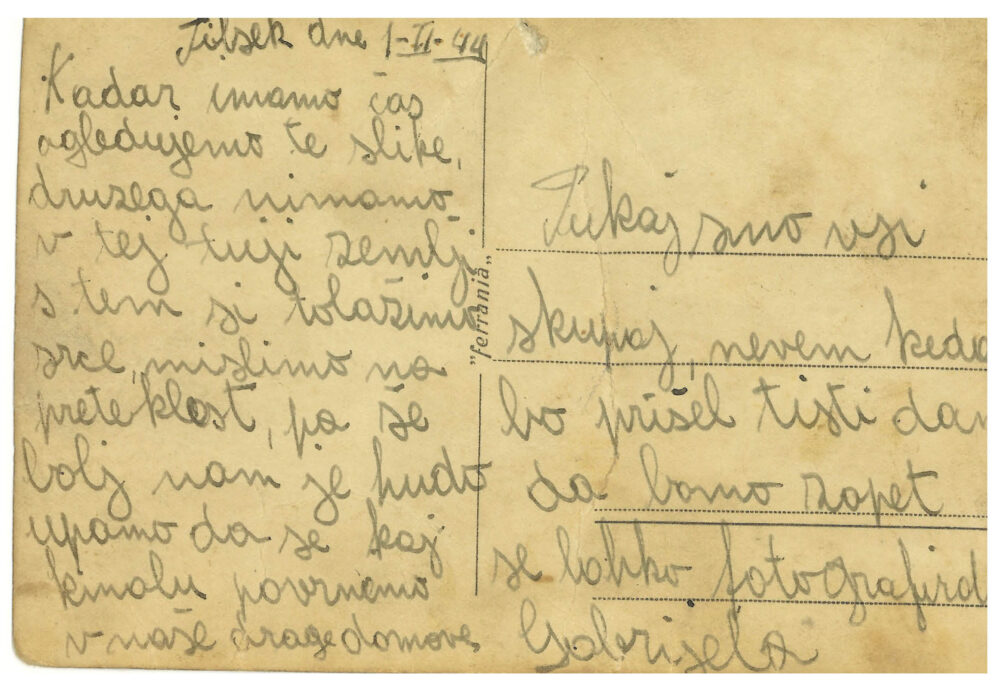 Filsek dne 1-II-44
Kadar imamo čas
ogledujemo te slike,
druzega nimamo
v tej tuji zemlji
s tem si tolažimo
srce, mislimo na
preteklost, pa še
bolj nam je hudo
upamo da se kaj
kmalu povrnemo
v naše drage domove
"ferrania"
Tukaj smo vsi
skupaj, nevem keda
bo prišel tisti dan
da bomo zopet
se lahko fotografira
Gabrijela